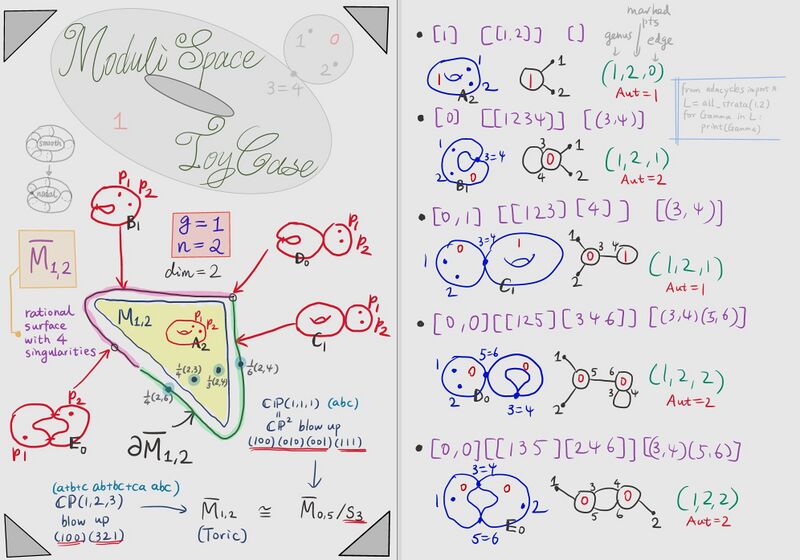 Moduli Space
Toy Case
1 0
2
3=4
1
smooth
nodal
P1 P2
B1
g=1
n=2
dim=2
P1
P2
D0
M̅1,2
rational
surface
with 4
singularities
M1,2
P1 P2
A2
P1
P2
C1
1/4(2,3)
1/3(2,4)
1/6(2,4)
1/4(2,6)
P2
P1
E0
∂M̅1,2
CP(1,1,1) (abc)
=
CP² blow up
(100)(010)(001)(111)
(a+b+c ab+bc+ca abc)
CP(1,2,3)
blow up
(100) (321)
→ M̅1,2 ≅ M̅0,5/S3
(Toric)
marked
pts
genus edge
• [1] [[1,2]] []
1 2 A2
1 1 2
(1,2,0)
Aut=1
from admcycles import *
L=all_strata(1,2)
for Gamma in L:
print(Gamma)
• [0] [[1234]] [(3,4)]
1 2 0 3=4 B1
3 4 0 1 2
(1,2,1)
Aut=2
• [0,1] [[123][4]] [(3,4)]
1 2 0 3=4 1 C1
1 2 0 3 4 1
(1,2,1)
Aut=1
• [0,0][[125][346]] [(3,4)(5,6)]
1 2 0 5=6 0 3=4 D0
1 2 0 5 6 0 3 4
(1,2,2)
Aut=2
• [0,0][[135][246]] [(3,4)(5,6)]
1 0 3=4 0 2 5=6 E0
1 0 3 4 5 6 0 2
(1,2,2)
Aut=2